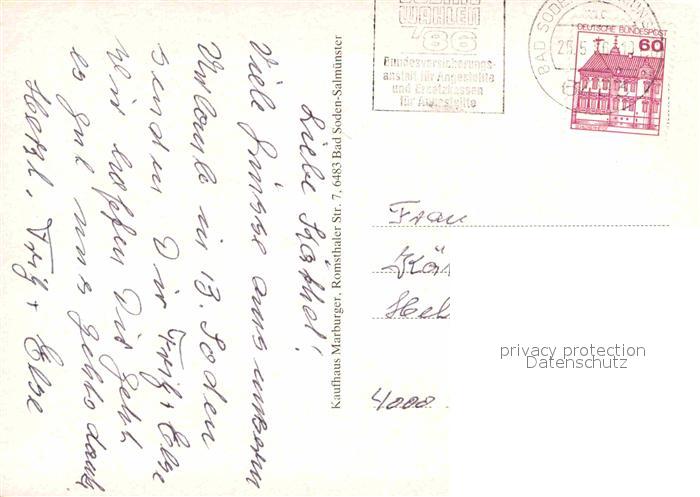 Liebe Käthel!
Viele Grüsse aus unserm
Urlaub in B. Soden
senden Dir Fritz + Else
Wir hoffen Dir geht
es gut uns gottlob dank
Herzl. Fritz + Else
Kaufhaus Marburger, Romsthaler Str. 7, 6483 Bad Soden-Salmünster
WAHLEN
'86
Bundesversicherungs-
anstalt für Angestellte
und Ersatzkassen
für Angestellte
BAD SODEN
DEUTSCHE BUNDESPOST
60
Frau
Kät
Hel
4000
privacy protection
Datenschutz